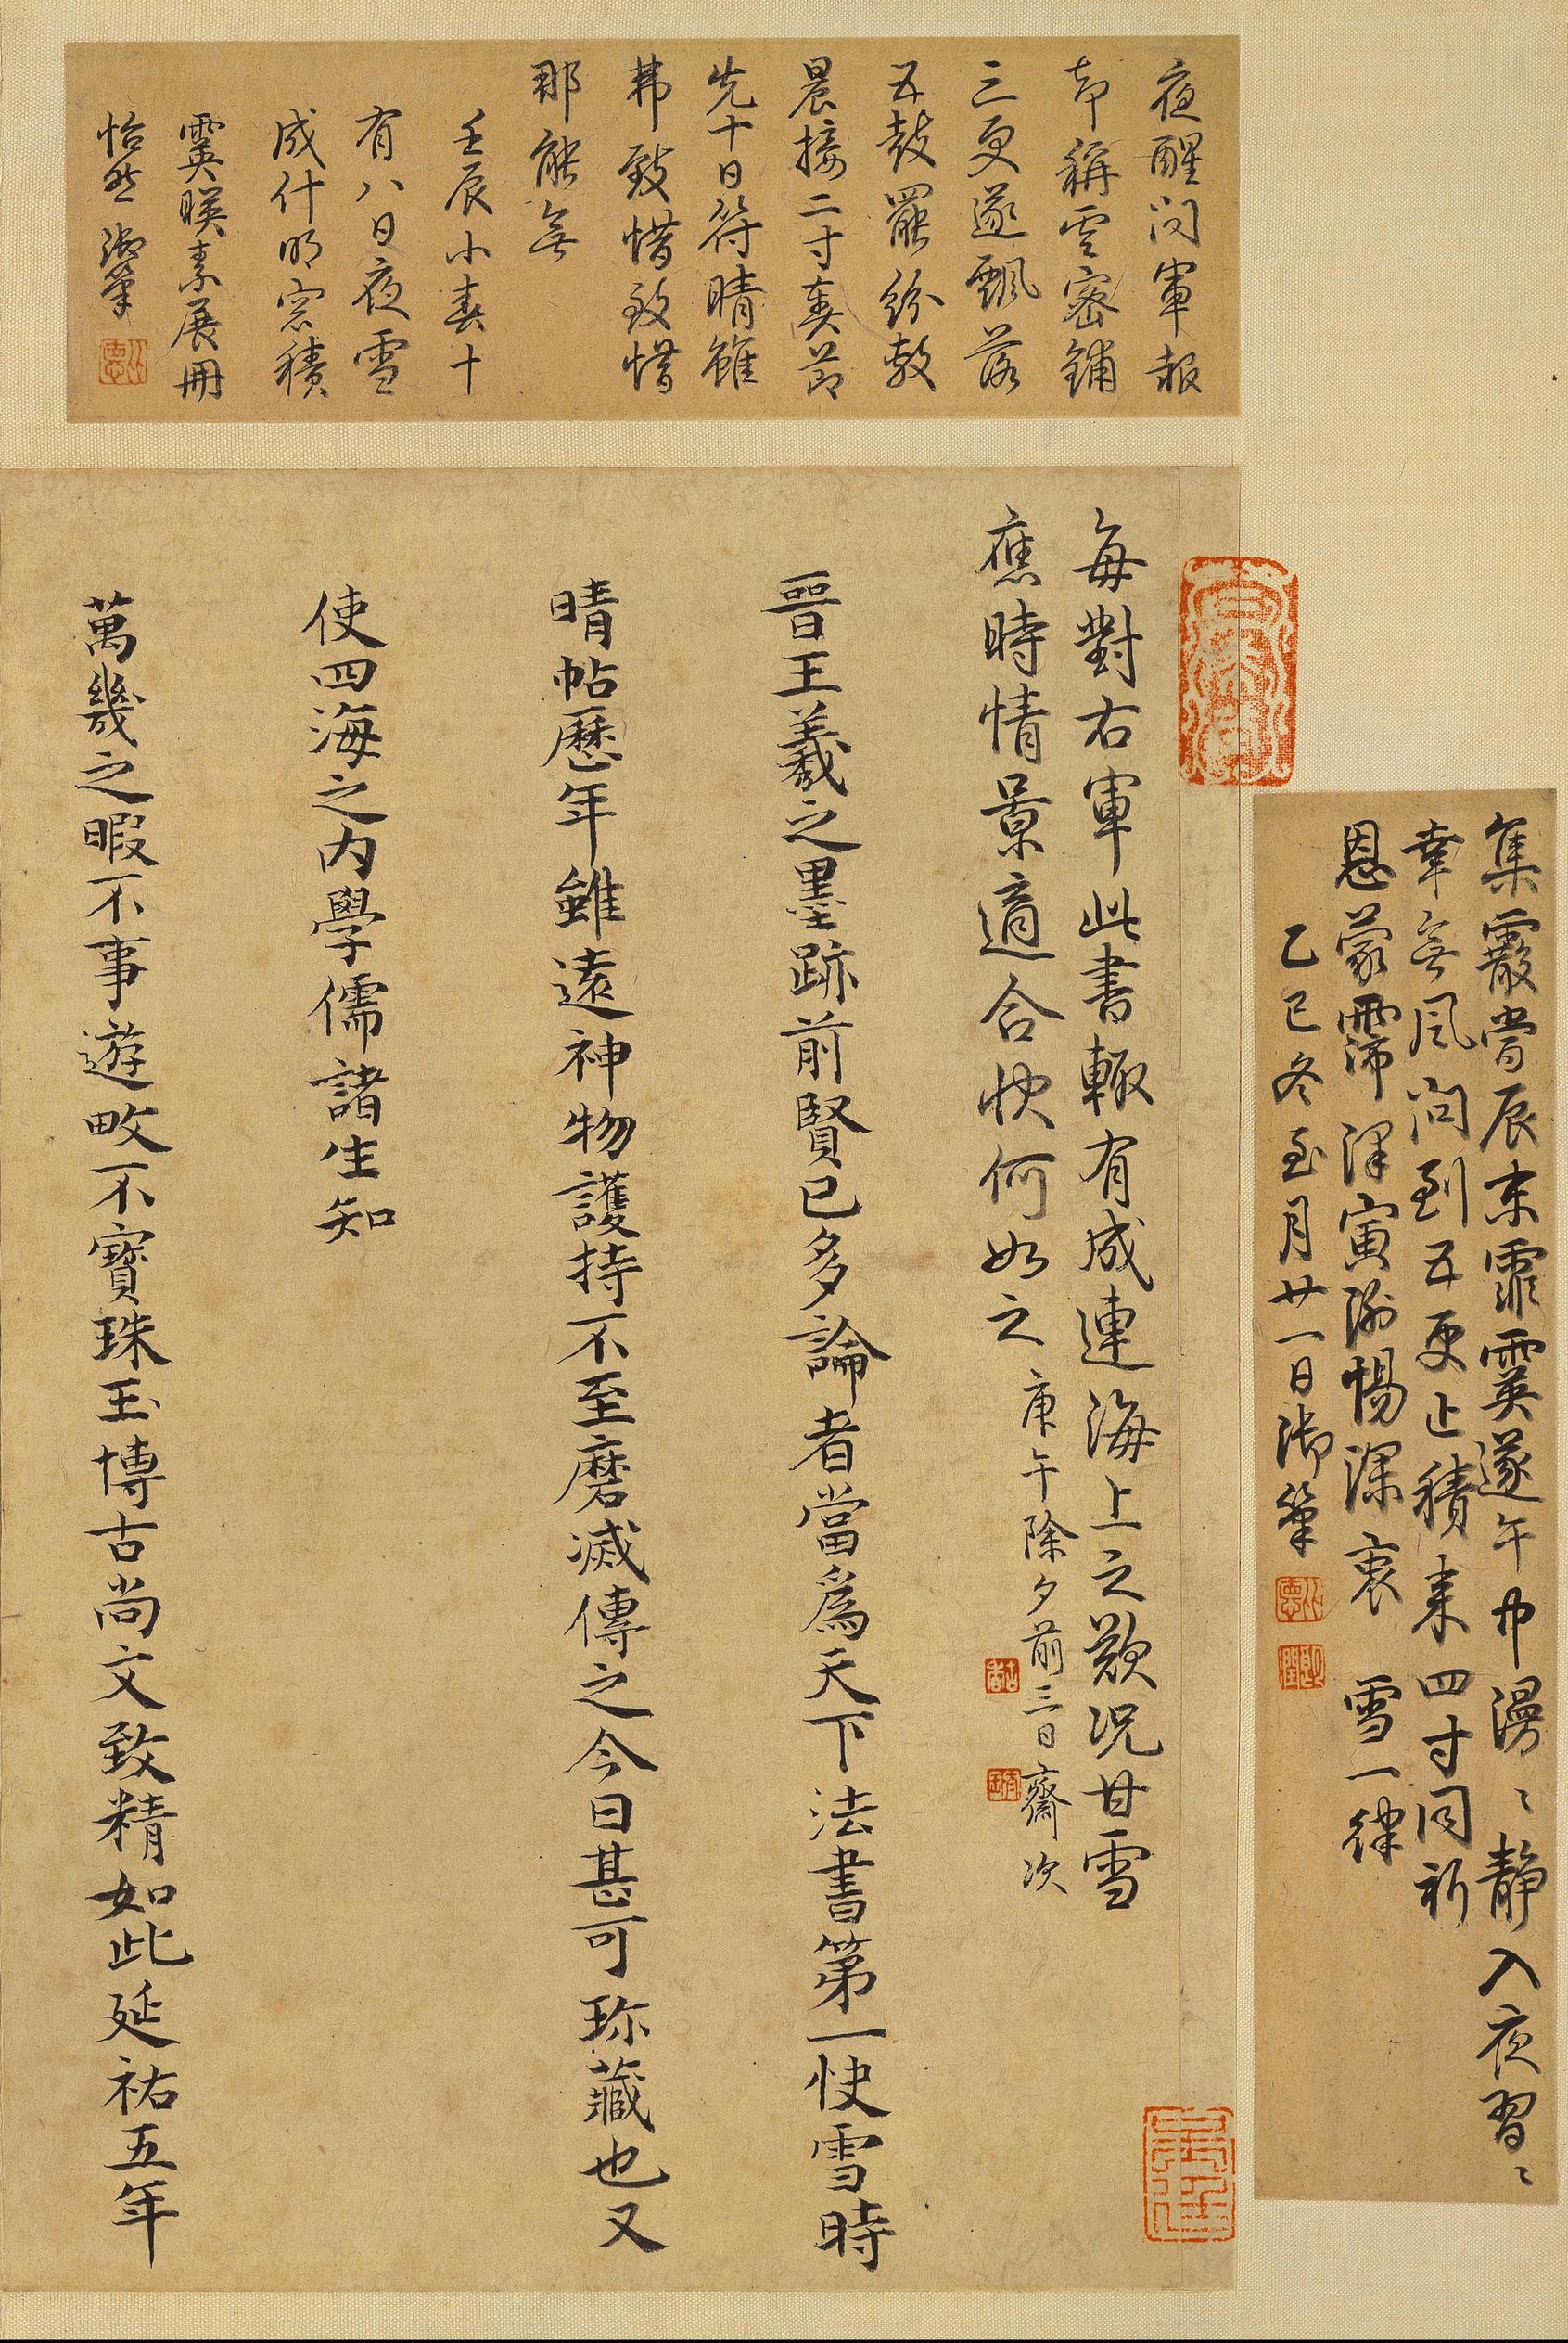 集霰當辰末霏霙遂午中漫〻靜入夜習習〻
幸無風問到五更止積來四寸同祈
恩蒙霈澤寅謝惕深衷 雪一律
乙巳冬至月廿一日御筆
夜醒問軍報
却稱雲密鋪
三更遂飄落
五鼓罷紛敷
晨接二寸奏節
先十日符晴雖
弗致惜致惜
那能無
壬辰小春十
有八日夜雪
成什明窓積
霙暎素展冊
怡然御筆
每對右軍此書輙有成連海上之歎況甘雪
應時情景適合快何如之 庚午除夕前三日齋次
晉王羲之墨跡前賢已多論者當爲天下法書第一快雪時
晴帖歷年雖遠神物護持不至磨滅傳之今日甚可珎藏也又
使四海之内學儒諸生知
萬幾之暇不事遊畋不寶珠玉博古尚文致精如此延祐五年